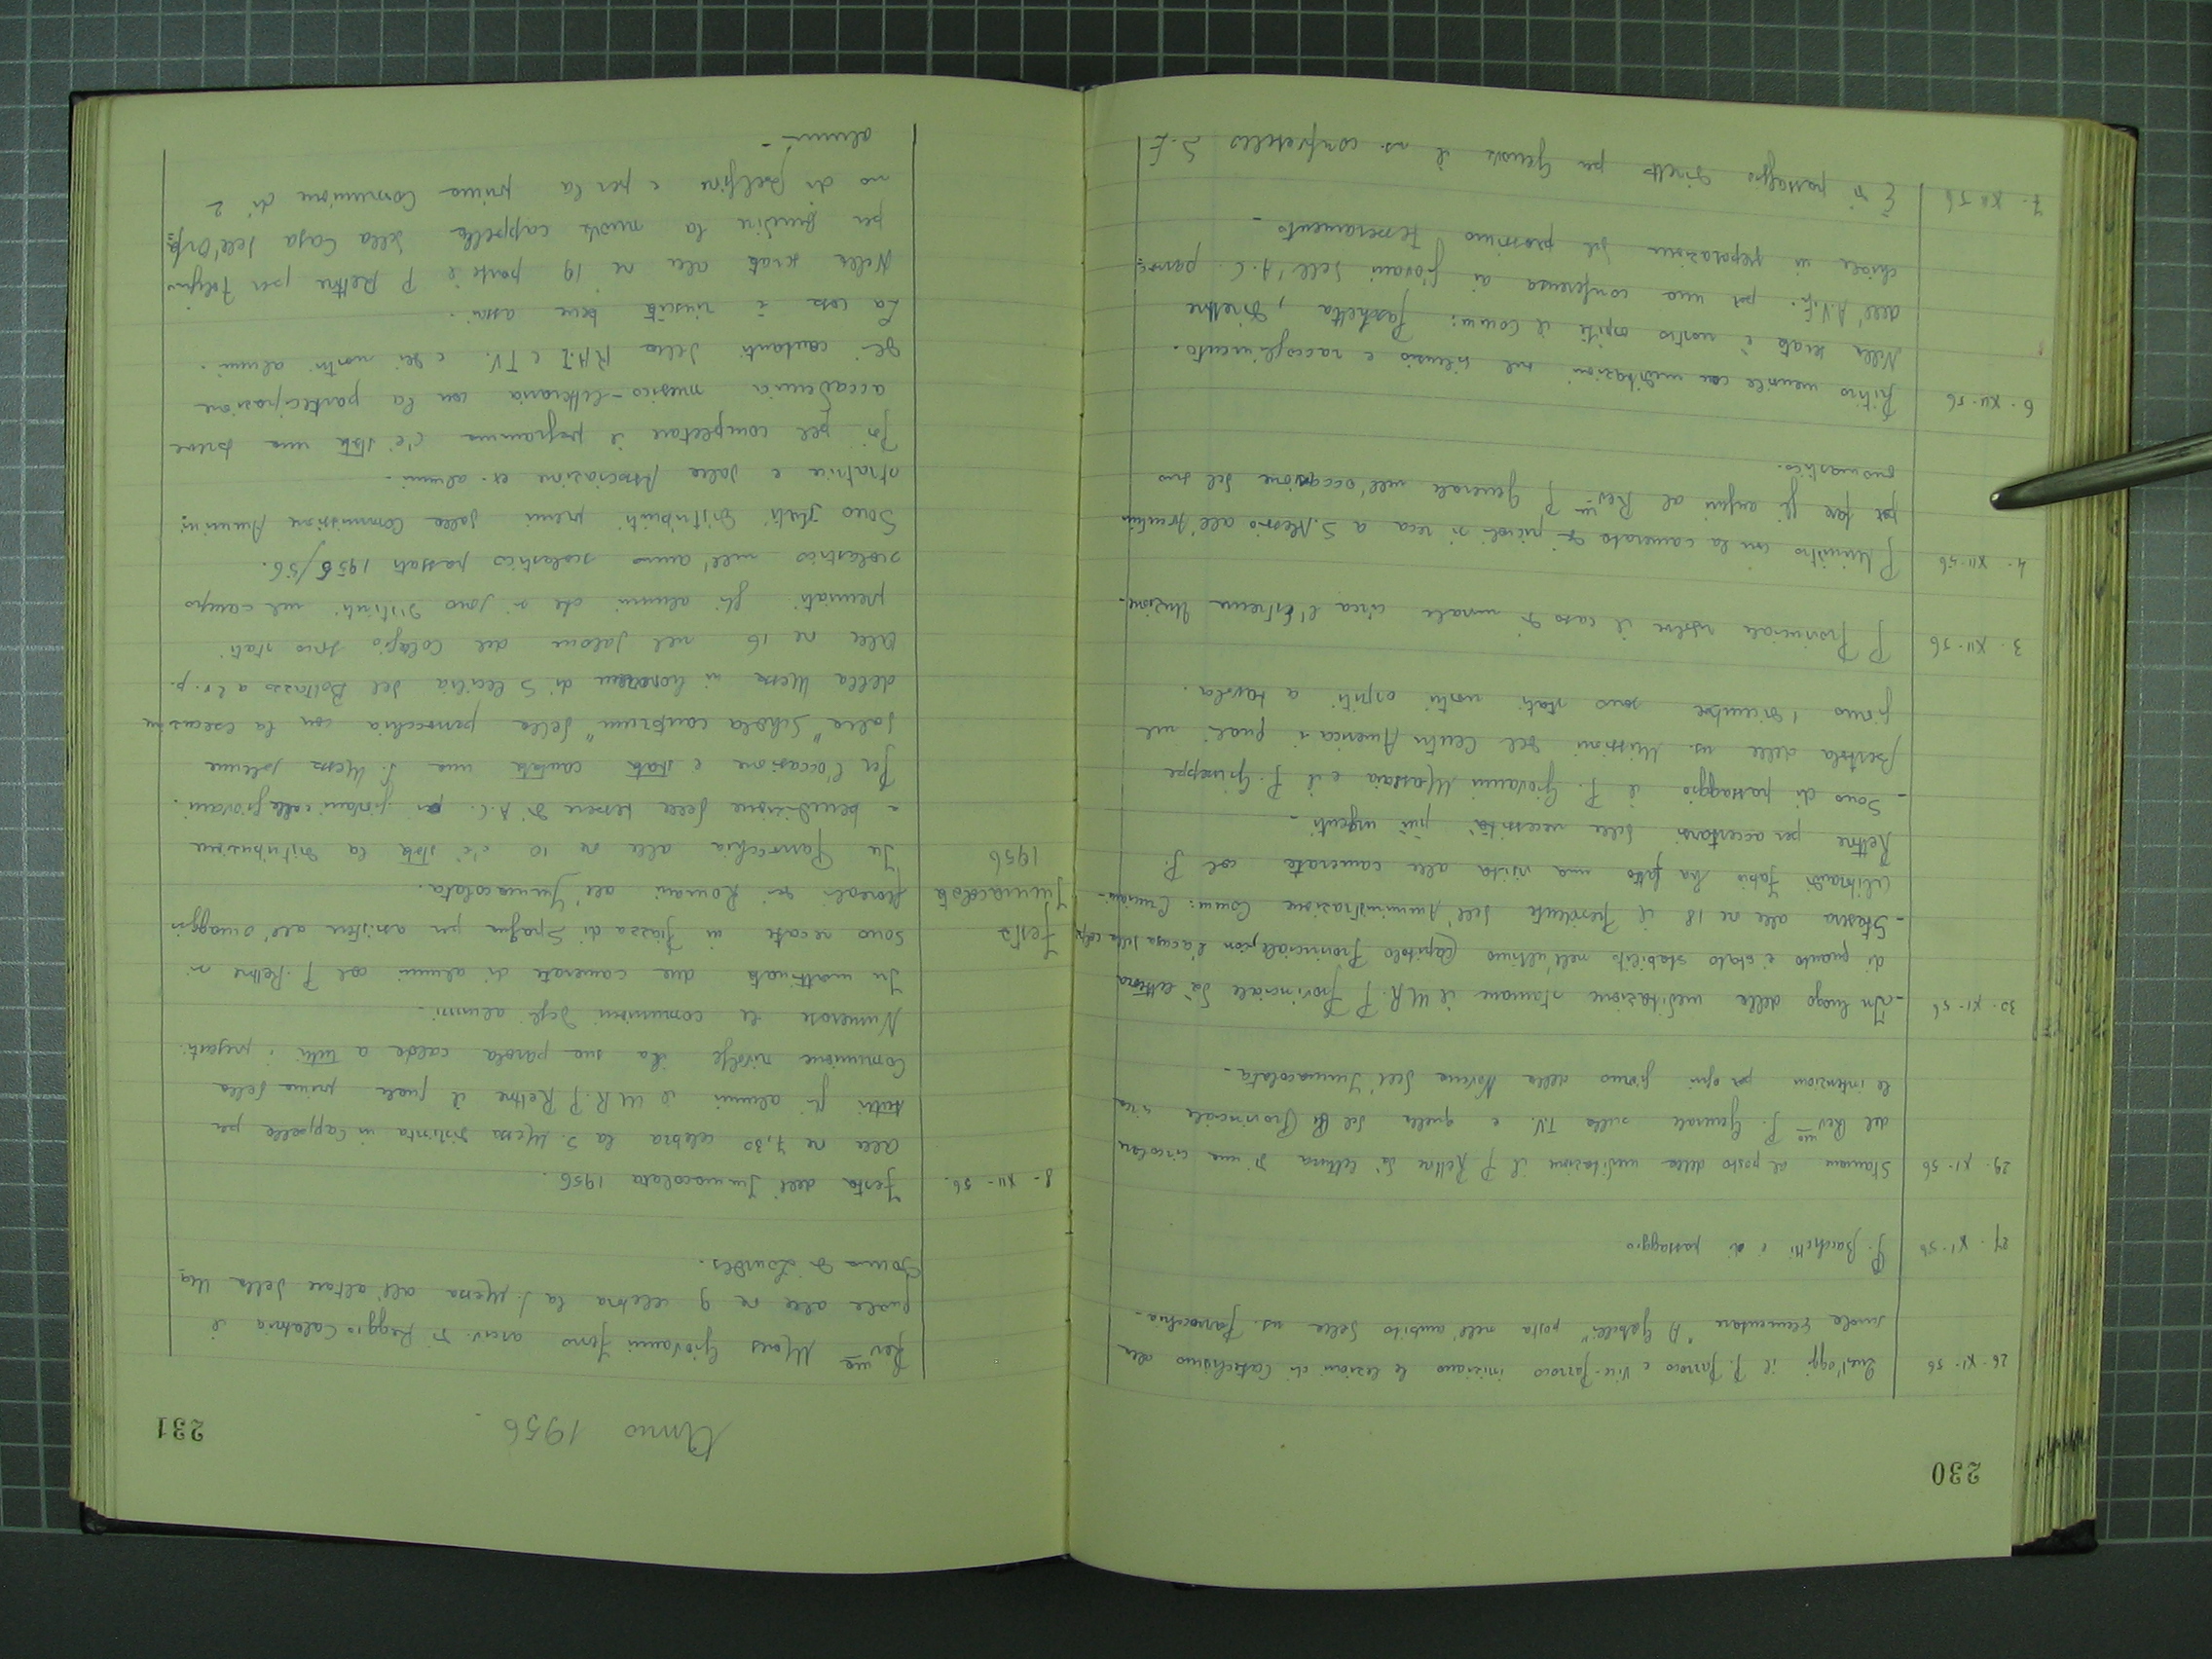 230
26. XI. 56 Quest'oggi il P. Parroco e Vice-Parroco iniziano le lezioni di Catechismo alla
scuola Elementare "A. Gabelli" posta nell'ambito della ns. Parrocchia.
27. XI. 56 P. Bacchetti è di passaggio
29. XI. 56 Stamane al posto della meditazione il P. Rettore dà lettura di una circolare
del Revmo P. Generale sulla TV. e quella del P. Provinciale circa
le intenzioni per ogni giorno della Novena dell'Immacolata.
30. XI. 56 - In luogo della meditazione stamane il M.R. P. Provinciale dà lettura
di quanto è stato stabilito nell'ultimo Capitolo Provinciale, con l'accusa della colpa
- Stasera alle re 18 il Presidente dell'Amministrazione Comm:
Fabio ha fatto una visita alle camerate col P.
Rettore per accertarsi delle necessità più urgenti.
- Sono di passaggio il P. Giovanni Massaia e il P. Giuseppe
della ns. Missioni del Centro America i quali nel
giorno 1 dicembre sono stati nostri ospiti a tavola.
3. XII. 56 P. Provinciale risolve il caso di morale circa l'Estrema Unzione.
4. XII. 56 P. Ministro con la camerata dei piccoli si reca a S. Alessio all'Aventino
per fare gli auguri al Revmo P. Generale nell'occasione del suo
onomastico.
6. XII. 56 Ritiro mensile con meditazioni nel silenzio e raccoglimento.
Nella serata è nostro ospite il Comm: Paschetta, Direttore
dell'A.V.E. per una conferenza ai giovani dell'A.C. parroc=
chiale in preparazione del prossimo tesseramento.
7. XII 56 È di passaggio diretto per Genova il ns. confratello S.E
Anno 1956.
231
Revmo Mons Giovanni Ferro arciv. di Reggio Calabria il
quale alle re 9 celebra la S. Messa all'altare della Ma
donna di Lourdes.
8 - XII - 56. Festa dell'Immacolata 1956.
Alle re 7,30 celebra la S. Messa distinta in Cappella per
tutti gli alunni il M.R. P. Rettore il quale prima della
Comunione rivolge la sua parola calda a tutti i presenti.
Numerose le comunioni degli alunni.
In mattinata due camerate di alunni col P. Rettore si
Festa sono recate in Piazza di Spagna per assistere all'omaggio
Immacolata floreale dei Romani all'Immacolata.
1956 In Parrocchia alle re 10 c'è stata la distribuzione
e benedizione delle tessere di A.C. giovani.
Per l'occasione è stata cantata una S. Messa solenne
dalla "Schola cantorum" della parrocchia con la esecuzione
della Messa in honorem di S Cecilia del Bottazzo a 2 v. p.
Alle re 16 nel salone del Collegio sono stati
premiati gli alunni che si sono distinti nel campo
scolastico nell'anno scolastico passato 1955/56.
Sono stati distribuiti premi dalla Commissione Ammini
stratrice e dalla Associazione ex-alunni.
Poi per completare il programma c'è stata una breve
accademia musico-letteraria con la partecipazione
di cantanti della R.A.I e TV. e dei nostri alunni.
La cosa è riuscita bene assai.
Nella serata alle re 19 parte il P Rettore per Foligno
per benedire la nuova cappella della Casa dell'Orfa=
no di Belfiore e per la prima Comunione di 2
alunni.